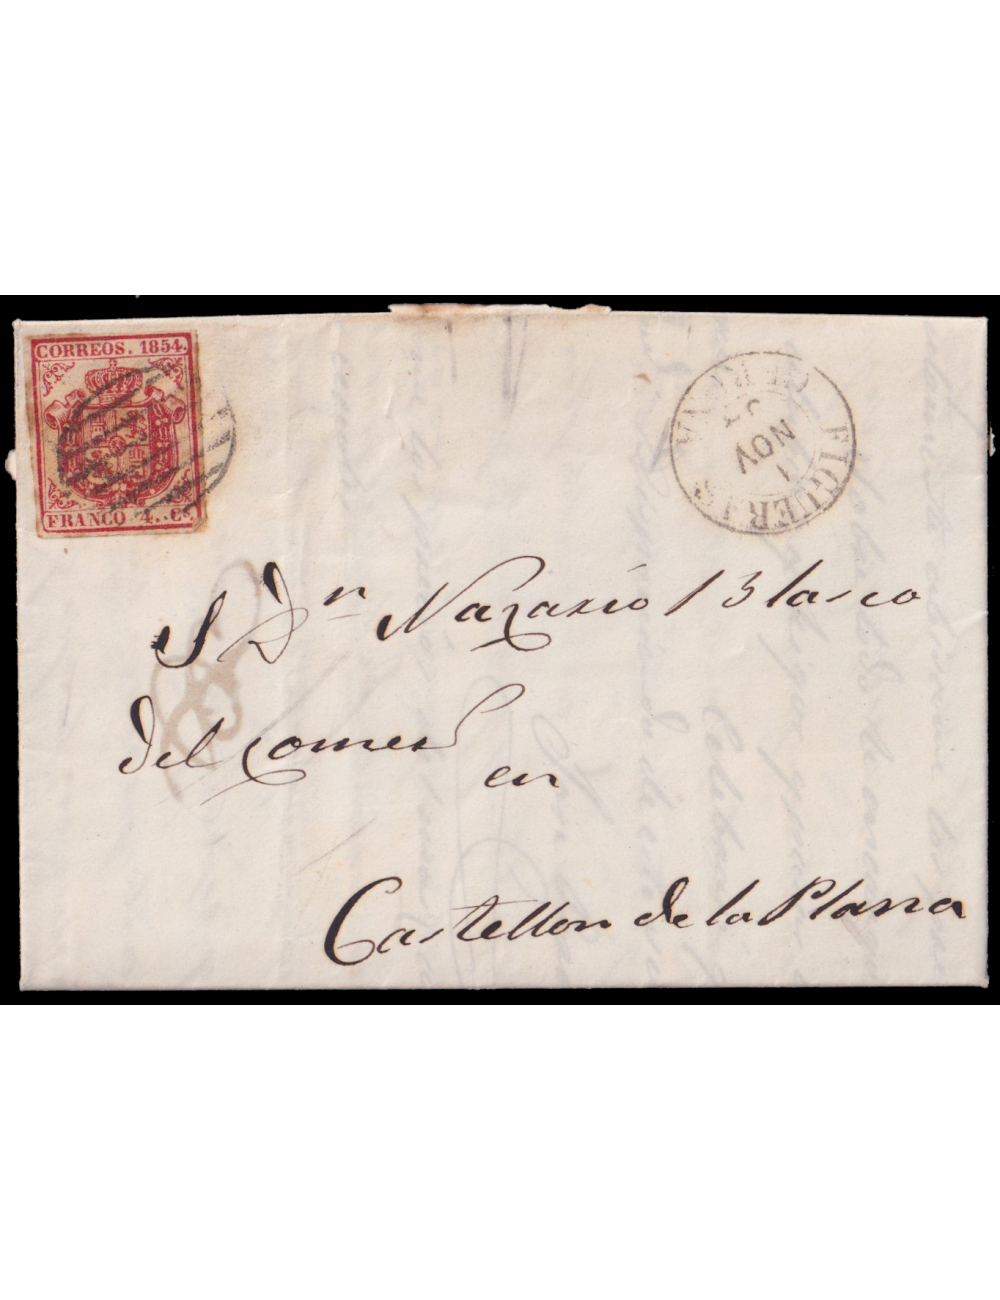 CORREOS. 1854.
FRANCO 4. Cs.
FIGUERAS
1
NOV
GERONA
S Dn Nazario Blasco
del Comero
en
Castellon de la Plana